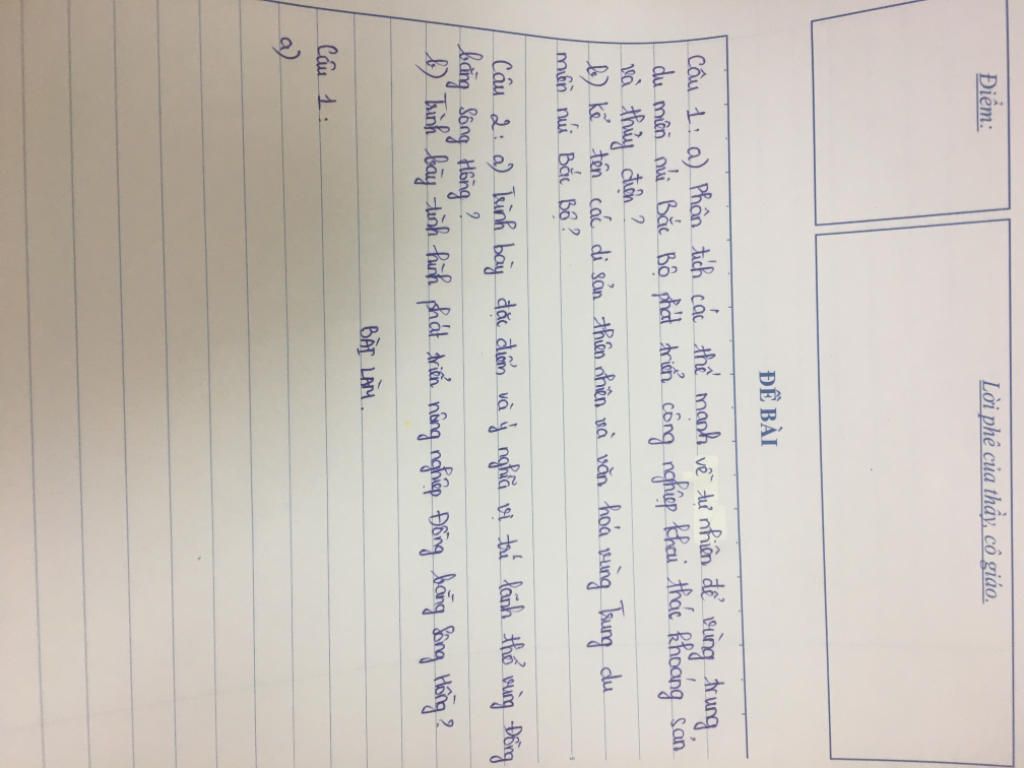 Điểm:
Lời phê của thầy, cô giáo.
ĐỀ BÀI
Câu 1: a) Phân tích các thế mạnh về tự nhiên để vùng trung
du miền núi Bắc Bộ phát triển công nghiệp khai thác khoáng sản
và thủy điện?
b) Kể tên các di sản thiên nhiên và văn hoá vùng Trung du
miền núi Bắc Bộ?
Câu 2: a) Trình bày đặc điểm và ý nghĩa vị trí lãnh thổ vùng Đồng
bằng sông Hồng?
b) Trình bày tình hình phát triển nông nghiệp Đồng bằng sông Hồng?
BÀI LÀM.
Câu 1:
a)